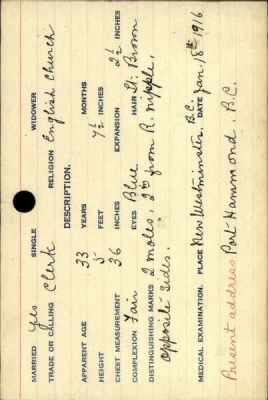 MARRIED Yes SINGLE WIDOWER
TRADE OR CALLING Clerk RELIGION English Church
DESCRIPTION.
APPARENT AGE 33 YEARS MONTHS
HEIGHT 5 FEET 7½ INCHES
CHEST MEASUREMENT 36 INCHES EXPANSION 2½ INCHES
COMPLEXION Fair EYES Blue HAIR Lt. Brown
DISTINGUISHING MARKS 2 moles, 2" from R. nipple,
opposite sides.
MEDICAL EXAMINATION. PLACE New Westminster, B.C. DATE Jan. 18th 1916
Present address Port Hammond, B.C.